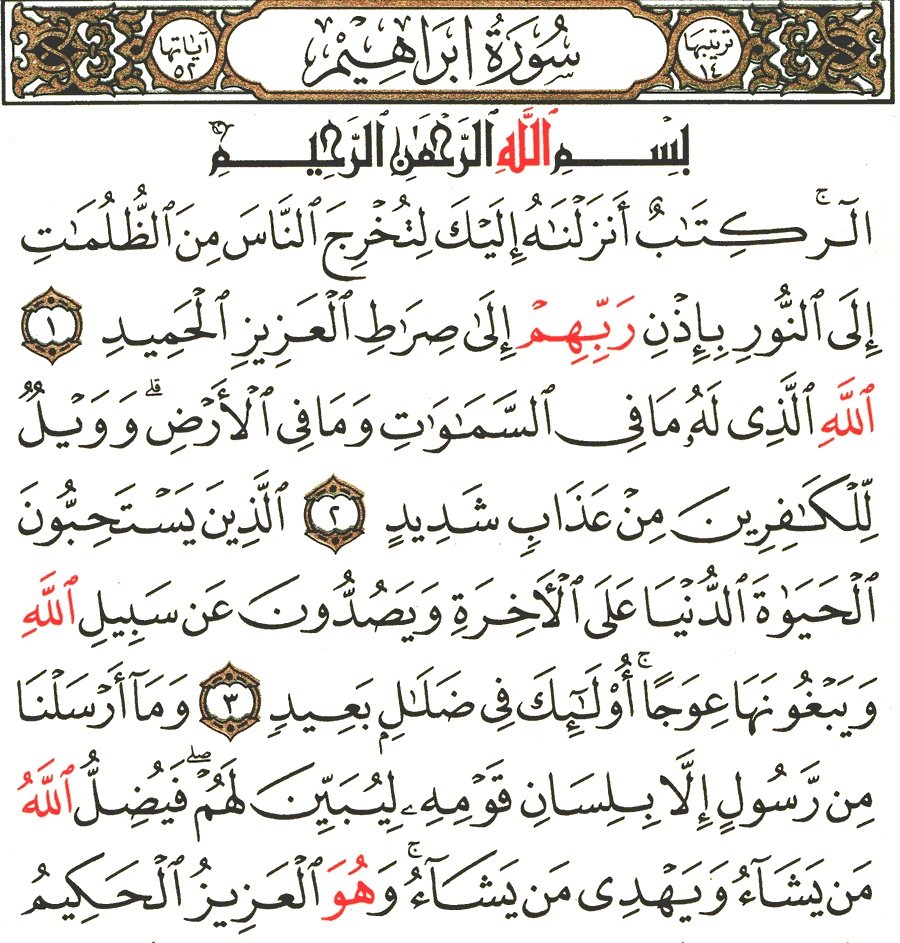 ترتيبها ١٤ سُورَةُ ابْرَاهِيْم آياتها ٥٢
بِسْمِ ٱللَّهِ ٱلرَّحْمَٰنِ ٱلرَّحِيمِ
الٓرۚ كِتَٰبٌ أَنزَلْنَٰهُ إِلَيْكَ لِتُخْرِجَ ٱلنَّاسَ مِنَ ٱلظُّلُمَٰتِ
إِلَى ٱلنُّورِ بِإِذْنِ رَبِّهِمْ إِلَىٰ صِرَٰطِ ٱلْعَزِيزِ ٱلْحَمِيدِ ١
ٱللَّهِ ٱلَّذِى لَهُۥ مَا فِى ٱلسَّمَٰوَٰتِ وَمَا فِى ٱلْأَرْضِۗ وَوَيْلٌ
لِّلْكَٰفِرِينَ مِنْ عَذَابٍ شَدِيدٍ ٢ ٱلَّذِينَ يَسْتَحِبُّونَ
ٱلْحَيَوٰةَ ٱلدُّنْيَا عَلَى ٱلْأَخِرَةِ وَيَصُدُّونَ عَن سَبِيلِ ٱللَّهِ
وَيَبْغُونَهَا عِوَجًاۚ أُوْلَٰٓئِكَ فِى ضَلَٰلٍۭ بَعِيدٍ ٣ وَمَآ أَرْسَلْنَا
مِن رَّسُولٍ إِلَّا بِلِسَانِ قَوْمِهِۦ لِيُبَيِّنَ لَهُمْۖ فَيُضِلُّ ٱللَّهُ
مَن يَشَآءُ وَيَهْدِى مَن يَشَآءُۚ وَهُوَ ٱلْعَزِيزُ ٱلْحَكِيمُ